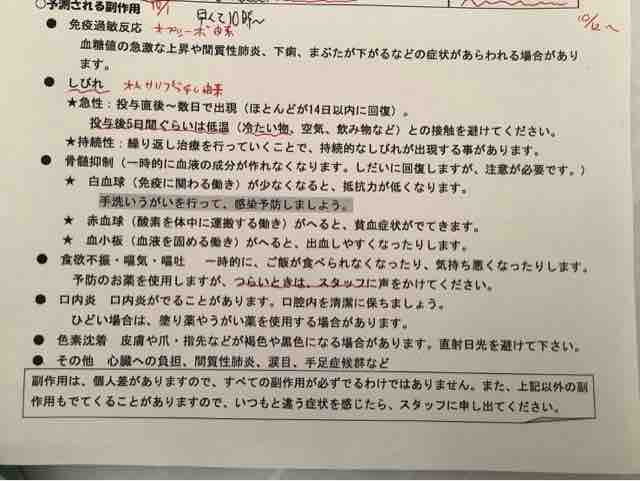 ○予測される副作用 10/1 早くて10時〜 10/2〜
● 免疫過敏反応 ★オプジーボ由来
血糖値の急激な上昇や間質性肺炎、下痢、まぶたが下がるなどの症状があらわれる場合があり
ます。
● しびれ ★オキサリプラチン由来
★急性：投与直後～数日で出現（ほとんどが14日以内に回復）。
投与後5日間ぐらいは低温（冷たい物、空気、飲み物など）との接触を避けてください。
★持続性：繰り返し治療を行っていくことで、持続的なしびれが出現する事があります。
● 骨髄抑制（一時的に血液の成分が作れなくなります。しだいに回復しますが、注意が必要です。）
★ 白血球（免疫に関わる働き）が少なくなると、抵抗力が低くなります。
手洗いうがいを行って、感染予防しましょう。
★ 赤血球（酸素を体中に運搬する働き）がへると、貧血症状がでてきます。
★ 血小板（血液を固める働き）がへると、出血しやすくなったりします。
● 食欲不振・嘔気・嘔吐 一時的に、ご飯が食べられなくなったり、気持ち悪くなったりします。
予防のお薬を使用しますが、つらいときは、スタッフに声をかけてください。
● 口内炎 口内炎がでることがあります。口腔内を清潔に保ちましょう。
ひどい場合は、塗り薬やうがい薬を使用する場合があります。
● 色素沈着 皮膚や爪・指先などが褐色や黒色になる場合があります。直射日光を避けて下さい。
● その他 心臓への負担、間質性肺炎、涙目、手足症候群など
副作用は、個人差がありますので、すべての副作用が必ずでるわけではありません。また、上記以外の副
作用もでてくることがありますので、いつもと違う症状を感じたら、スタッフに申し出てください。